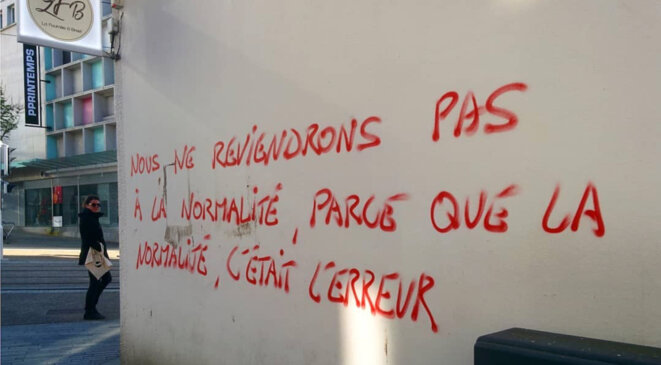 LFB
PPRINTEMPS
NOUS NE REVIENDRONS PAS
À LA NORMALITÉ, PARCE QUE LA
NORMALITÉ, C'ÉTAIT L'ERREUR